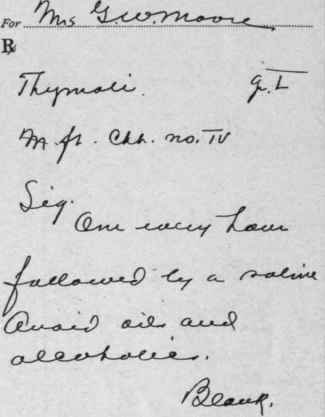 For Mrs G.W. Moore
℞
Thymoli. gr. L
M. ft. Cht. no. IV
Sig.
One every hour
followed by a saline
Avoid oils and
alcoholics.
Blank.